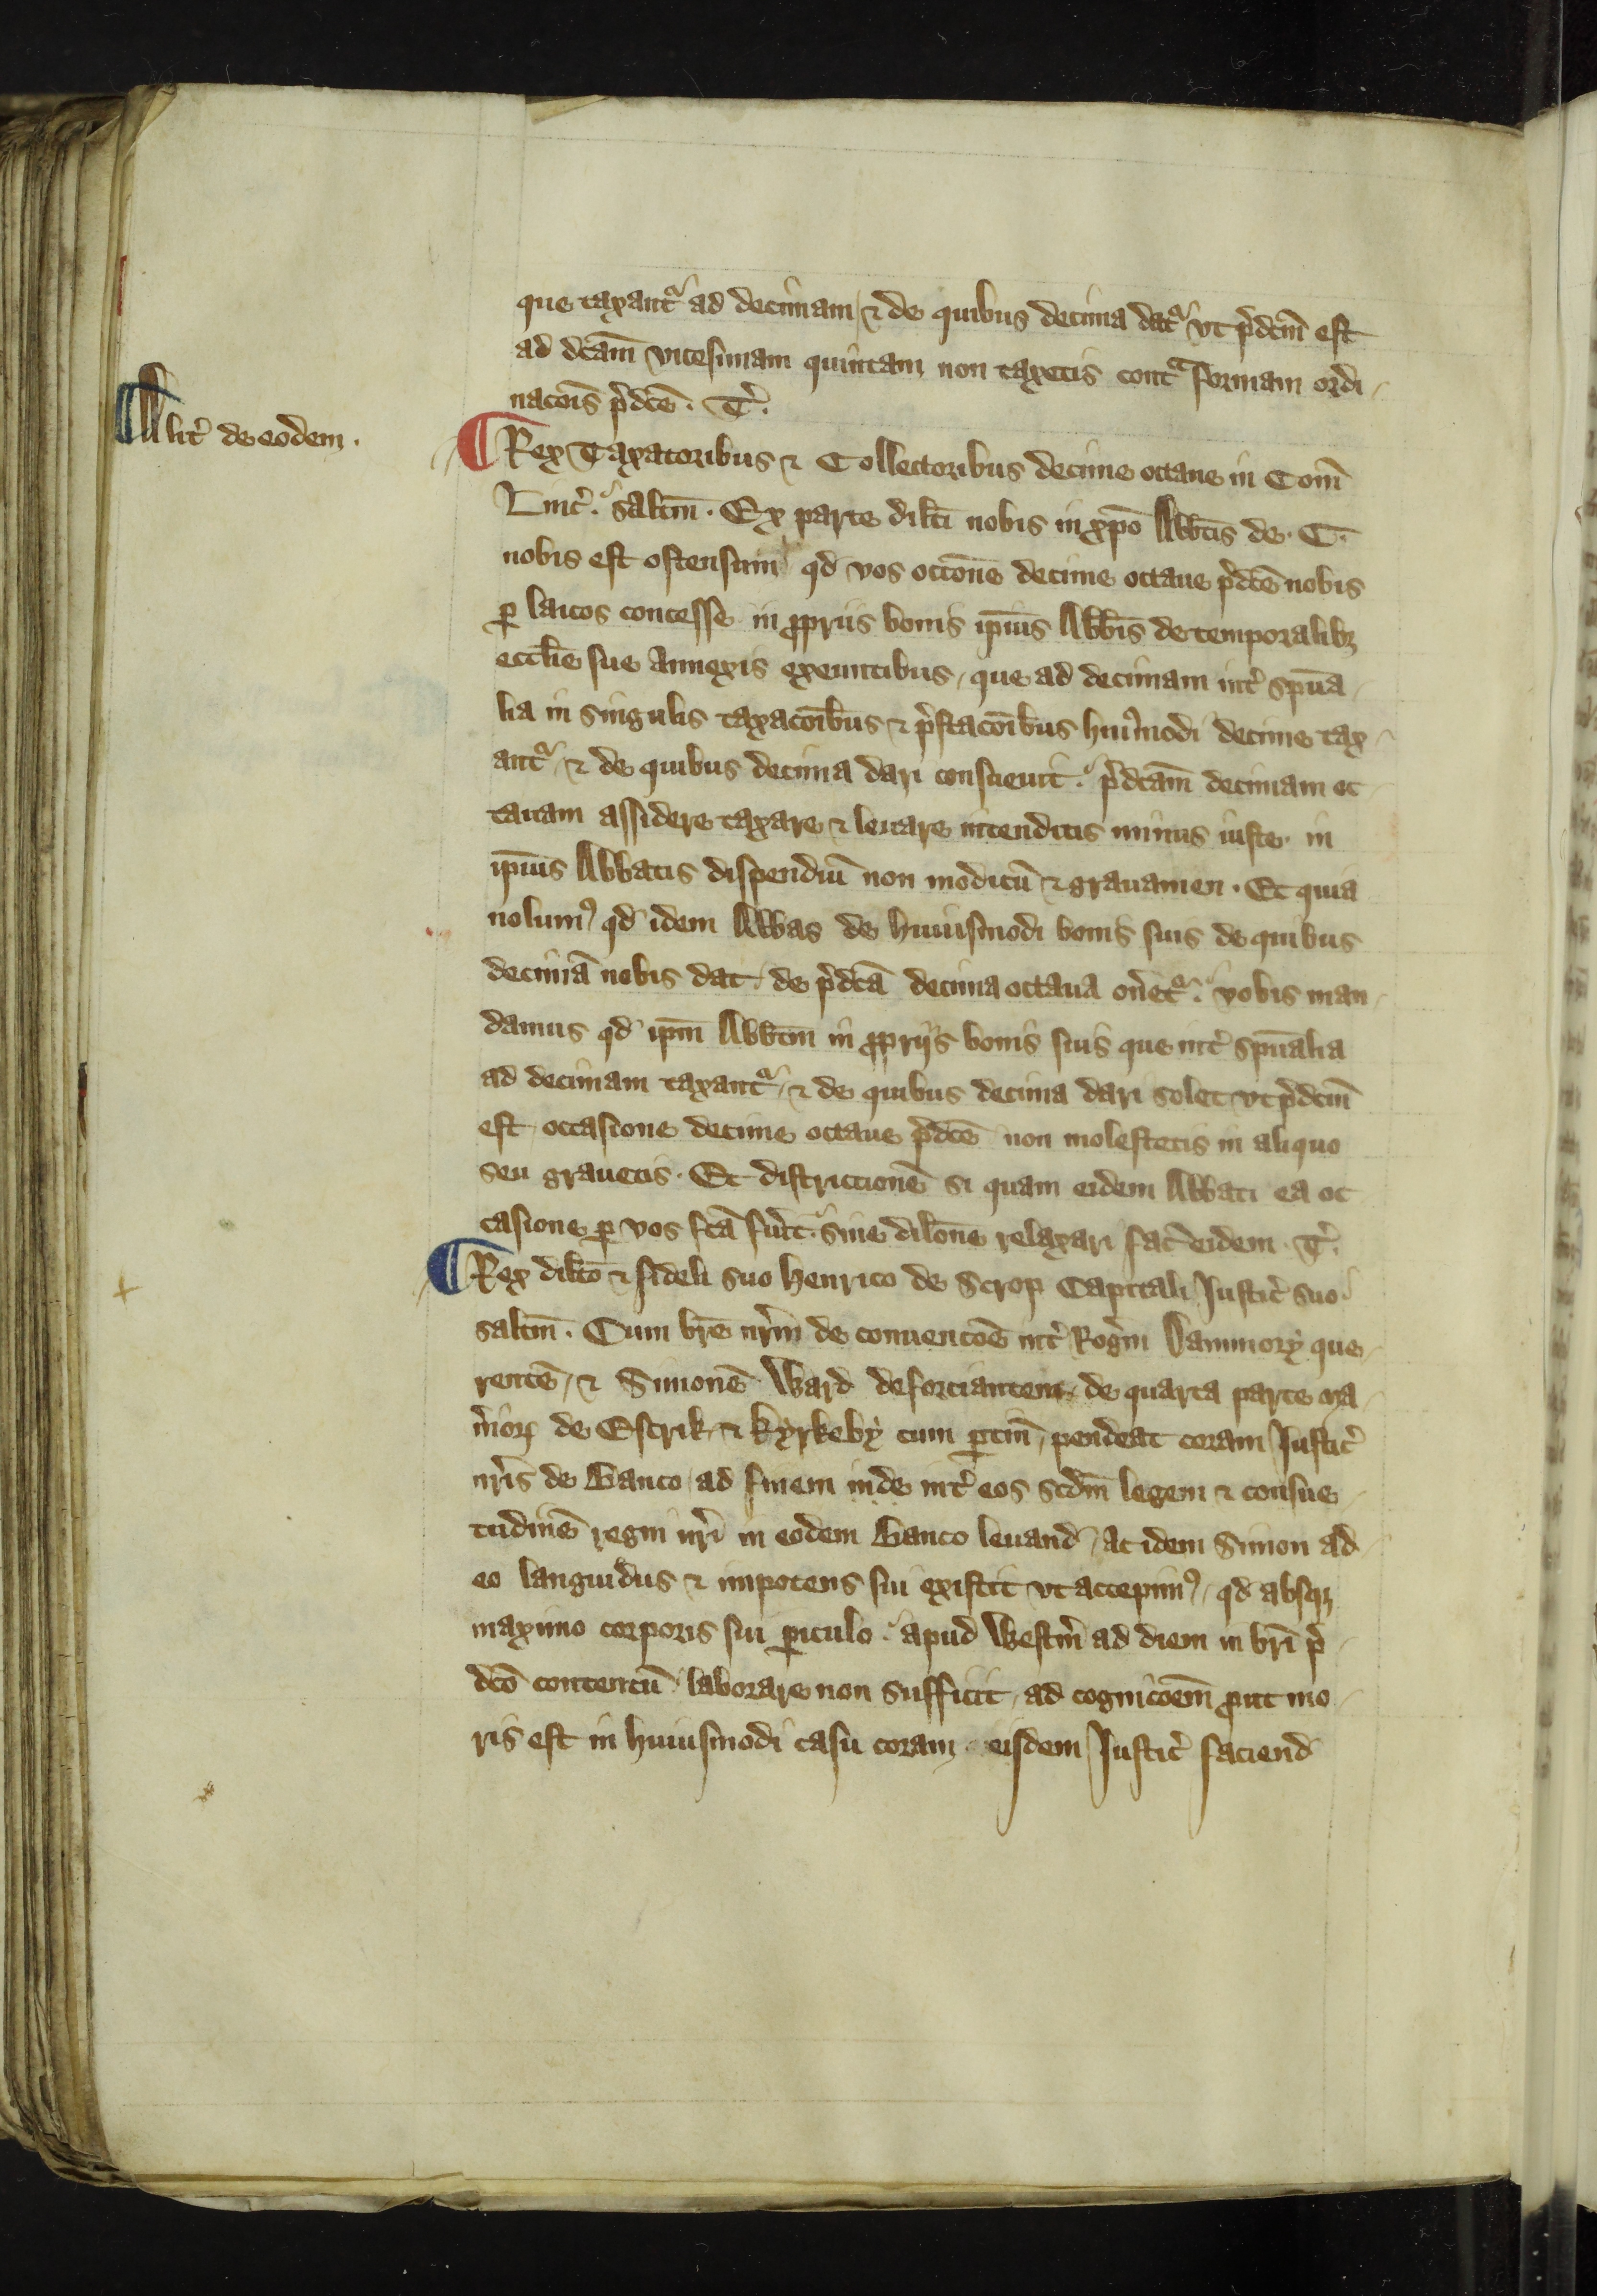 que taxantᷣ ad decimam / ⁊ de quibus decima datᷣ vt p̃dc̃m est
ad dc̃am vicesimam quintam non taxetis contᵃ formam ordi /
nac̃ois p̃dc̃e . T̃ .
¶ Alit̃ de eodem .
¶ Rex Taxatoribus ⁊ Collectoribus decime octaue in Com̃
Linc̃ . salt̃m . Ex parte dilc̃i nobis in xp̃o Abb̃tis de . T .
nobis est ostensum qd̃ vos occ̃one decime octaue p̃dc̃e nobis
ꝑ laicos concesse in ꝓpriis bonis ip̃ius Abb̃is de temporalibꝫ
eccl̃ie sue annexis exeuntibus / que ad decimam int̃ sp̃ua /
lia in singulis taxac̃oibus ⁊ p̃stac̃oibus huiꝰmodi decime tax /
antᷣ / ⁊ de quibus decima dari consueuit . p̃dc̃am decimam oc
tauam assidere taxare ⁊ leuare intenditis minus iuste . in
ip̃ius Abbatis dispendiũ non modicũ ⁊ grauamen . Et quia
nolumꝰ qd̃ idem Abbas de huiusmodi bonis suis de quibus
decimã nobis dat / de p̃dc̃a decima octaua on̾etᷣ . vobis man /
damus qd̃ ip̃m Abb̃tm in ꝓpriis bonis suis que int̃ sp̃ualia
ad decimam taxantᷣ / ⁊ de quibus decima dari solet vt p̃dc̃m
est / occasione decime octaue p̃dc̃e non molestetis in aliquo
seu grauetis . Et districtionẽ si quam eidem Abbati ea oc
casione ꝑ vos fc̃a fũit . sine dilc̃one relaxari fac̃ eidem . T̃ .
¶ Rex dilc̃o ⁊ fideli suo Henrico de Scrop Capitali Justic̃ suo
salt̃m . Cum br̃e nr̃m de conuenc̃oe int̃ Rog̃m Dammory que /
rentẽ / ⁊ Simonẽ Ward deforciantem / de quarta parte ma /
ñioꝝ de Escrik / ⁊ Kyrkeby cum ꝑtiñ / pendeat coram Justic̃
nr̃is de Banco / ad finem inde int̃ eos scd̃m legem ⁊ consue /
tudinẽ regni nr̃i in eodem Banco leuand̃ / ac idem Simon ad /
eo languidus ⁊ impotens sui existit vt accepimꝰ / qd̃ absqꝫ
maximo corporis sui ꝑiculo . apud Westm̃ ad diem in br̃i p̃ /
dc̃o contentũ laborare non sufficit / ad cognic̃oem ꝓut mo /
ris est in huiusmodi casu coram eisdem Justic̃ faciend̃